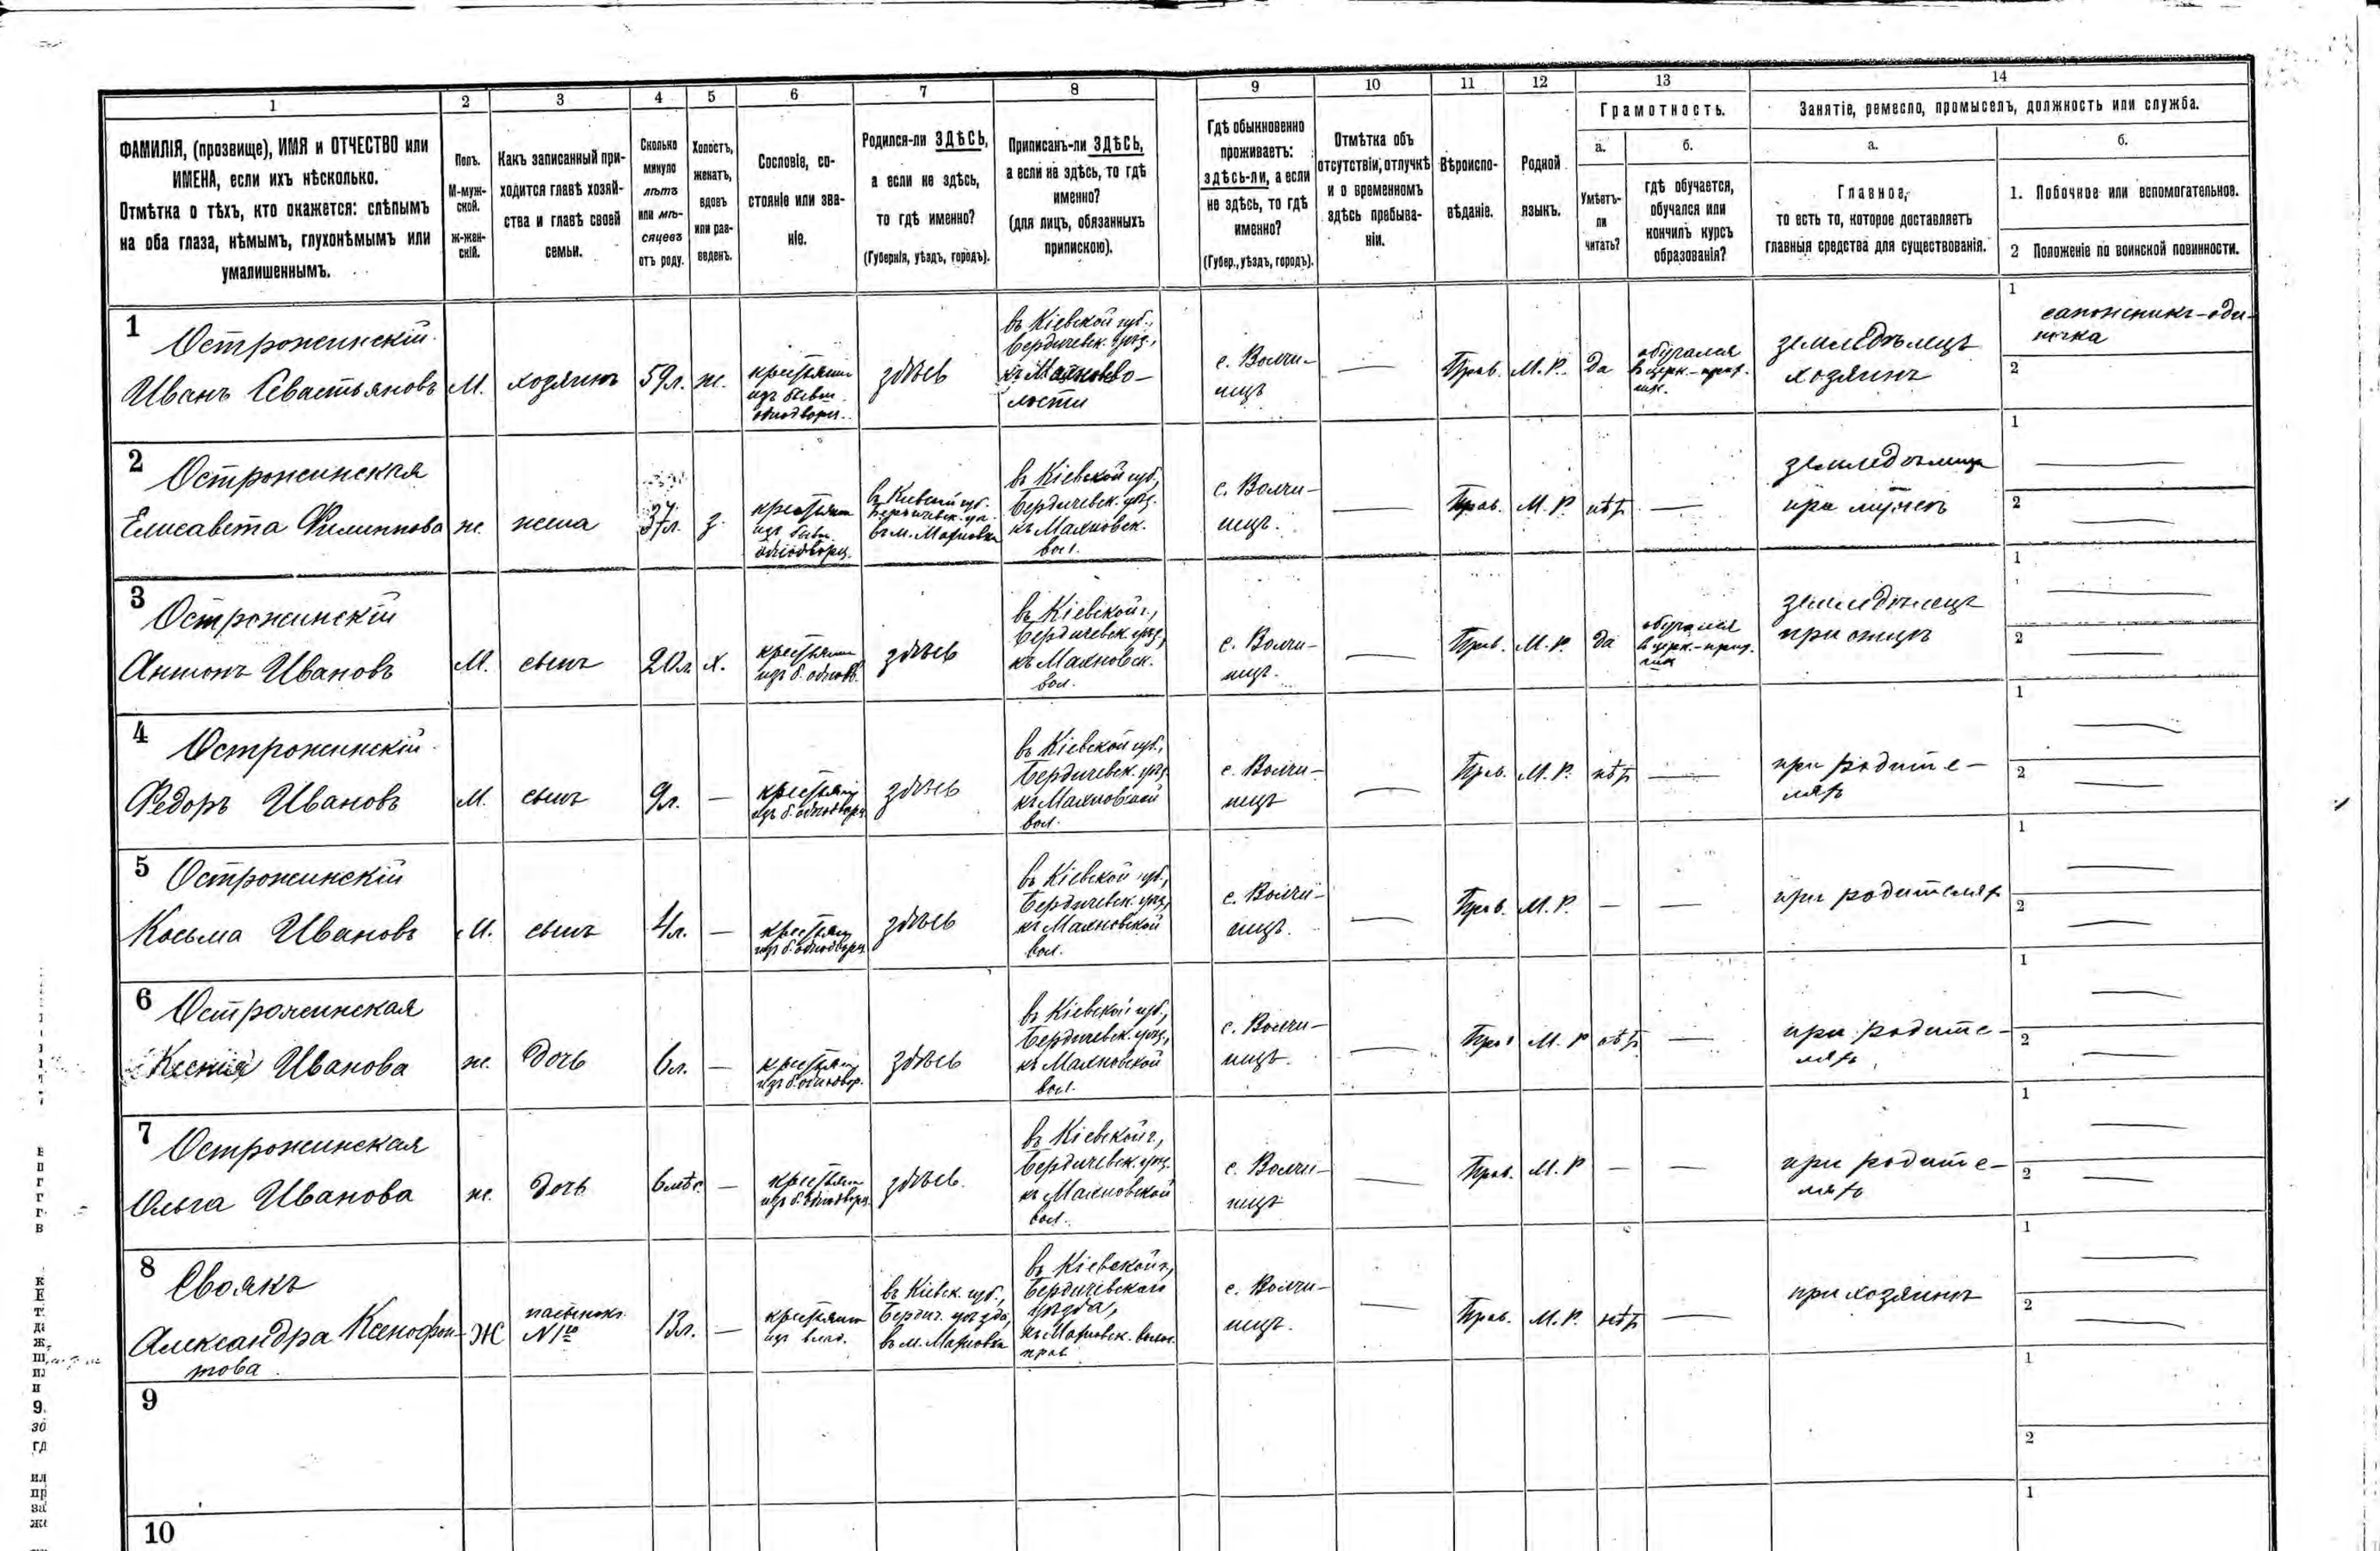 1 2 3 4 5 6 7 8 9 10 11 12 13 14
ФАМИЛІЯ, (прозвище), ИМЯ и ОТЧЕСТВО или
ИМЕНА, если ихъ нѣсколько.
Отмѣтка о тѣхъ, кто окажется: слѣпымъ
на оба глаза, нѣмымъ, глухонѣмымъ или
умалишеннымъ.
Полъ.
М-муж-
ской.
Ж-жен-
скій.
Какъ записанный при-
ходится главѣ хозяй-
ства и главѣ своей
семьи.
Сколько
минуло
лѣтъ
или мѣ-
сяцевъ
отъ роду.
Холостъ,
женатъ,
вдовъ
или раз-
веденъ.
Сословіе, со-
стояніе или зва-
ніе.
Родился-ли ЗДѢСЬ,
а если не здѣсь,
то гдѣ именно?
(Губернія, уѣздъ, городъ).
Приписанъ-ли ЗДѢСЬ,
а если не здѣсь, то гдѣ
именно?
(для лицъ, обязанныхъ
припискою).
Гдѣ обыкновенно
проживаетъ:
здѣсь-ли, а если
не здѣсь, то гдѣ
именно?
(Губер., уѣздъ, городъ).
Отмѣтка объ
отсутствіи, отлучкѣ
и о временномъ
здѣсь пребыва-
ніи.
Вѣроиспо-
вѣданіе.
Родной
языкъ.
Грамотность.
а.
Умѣетъ-
ли
читать?
б.
гдѣ обучается,
обучался или
кончилъ курсъ
образованія?
Занятіе, ремесло, промыселъ, должность или служба.
а.
Главное,
то есть то, которое доставляетъ
главныя средства для существованія.
б.
1. Побочное или вспомогательное.
2 Положеніе по воинской повинности.
1
Острожинскій
Иванъ Севастьяновъ
М.
хозяинъ
59л.
ж.
крестьянин
изъ бывш.
однодворц.
здѣсь
въ Кіевской губ.,
Бердичевск. уѣз.,
лости
с. Волчи-
нецъ
—
Прав.
М. Р.
да
обучался
в церк.-прих.
шк.
земледѣлецъ
хозяинъ
1
сапожникъ-оди-
ночка
2
2
Острожинская
Елисавета Филиппова
ж.
жена
37л.
з.
крестьян
изъ бывш.
однодворц.
въ Кіевской губ.
Бердичевск. уѣ.
въ м. Махновкѣ
въ Кіевской губ.,
Бердичевск. уѣз.
къ Махновск.
вол.
с. Волчи-
нецъ.
—
Прав.
М. Р.
нѣтъ
—
земледѣлица
при мужѣ
1
—
2
—
3
Острожинскій
Антонъ Ивановъ
М.
сынъ
20л.
х.
крестьянин
изъ б. однодв.
здѣсь
въ Кіевской г.,
Бердичевск. уѣз.,
къ Махновск.
вол.
с. Волчи-
нецъ.
—
Прав.
М. Р.
да
обучался
в церк.-прих.
шк
земледѣлецъ
при отцѣ
1
—
2
—
4
Острожинскій
Федоръ Ивановъ
М.
сынъ
9л.
—
крестьянин
изъ б. однодворц.
здѣсь
въ Кіевской губ.,
Бердичевск. уѣз.
къ Махновской
вол.
с. Волчи-
нецъ
—
Прав.
М. Р.
нѣтъ
—
при родите-
ляхъ
1
—
2
—
5
Острожинскій
Косьма Ивановъ
М.
сынъ
4л.
—
крестьянин
изъ б. однодворц.
здѣсь
въ Кіевской губ.,
Бердичевск. уѣз,
къ Махновской
вол.
с. Волчи-
нецъ.
—
Прав.
М. Р.
—
—
при родителяхъ
1
—
2
—
6
Острожинская
Ксенія Иванова
ж.
дочь
6л.
—
крестьянин
изъ б. однодвор.
здѣсь
въ Кіевской губ.,
Бердичевск. уѣз.,
къ Махновской
вол.
с. Волчи-
нецъ.
—
Прав
М. Р
нѣтъ
—
при родите-
ляхъ
1
—
2
—
7
Острожинская
Ольга Иванова
ж.
дочь
6 мѣс.
—
крестьян
изъ б. однодворц.
здѣсь.
въ Кіевской г.,
Бердичевск. уѣз.
къ Махновской
вол.
с. Волчи-
нецъ
—
Прав.
М. Р
—
—
при родите-
ляхъ
1
—
2
—
8
Своякъ
Александра Ксенофон-
това
Ж
№1го
13л.
—
крестьянин
изъ влад.
въ Кіевск. губ.,
Бердич. уѣзда,
въ м. Махновкѣ
въ Кіевской г.,
Бердичевскаго
уѣзда,
къ Махновск. волос.
прав
с. Волчи-
нецъ.
—
Прав.
М. Р.
нѣтъ
—
при хозяинѣ
1
—
2
—
9
1
2
10
1